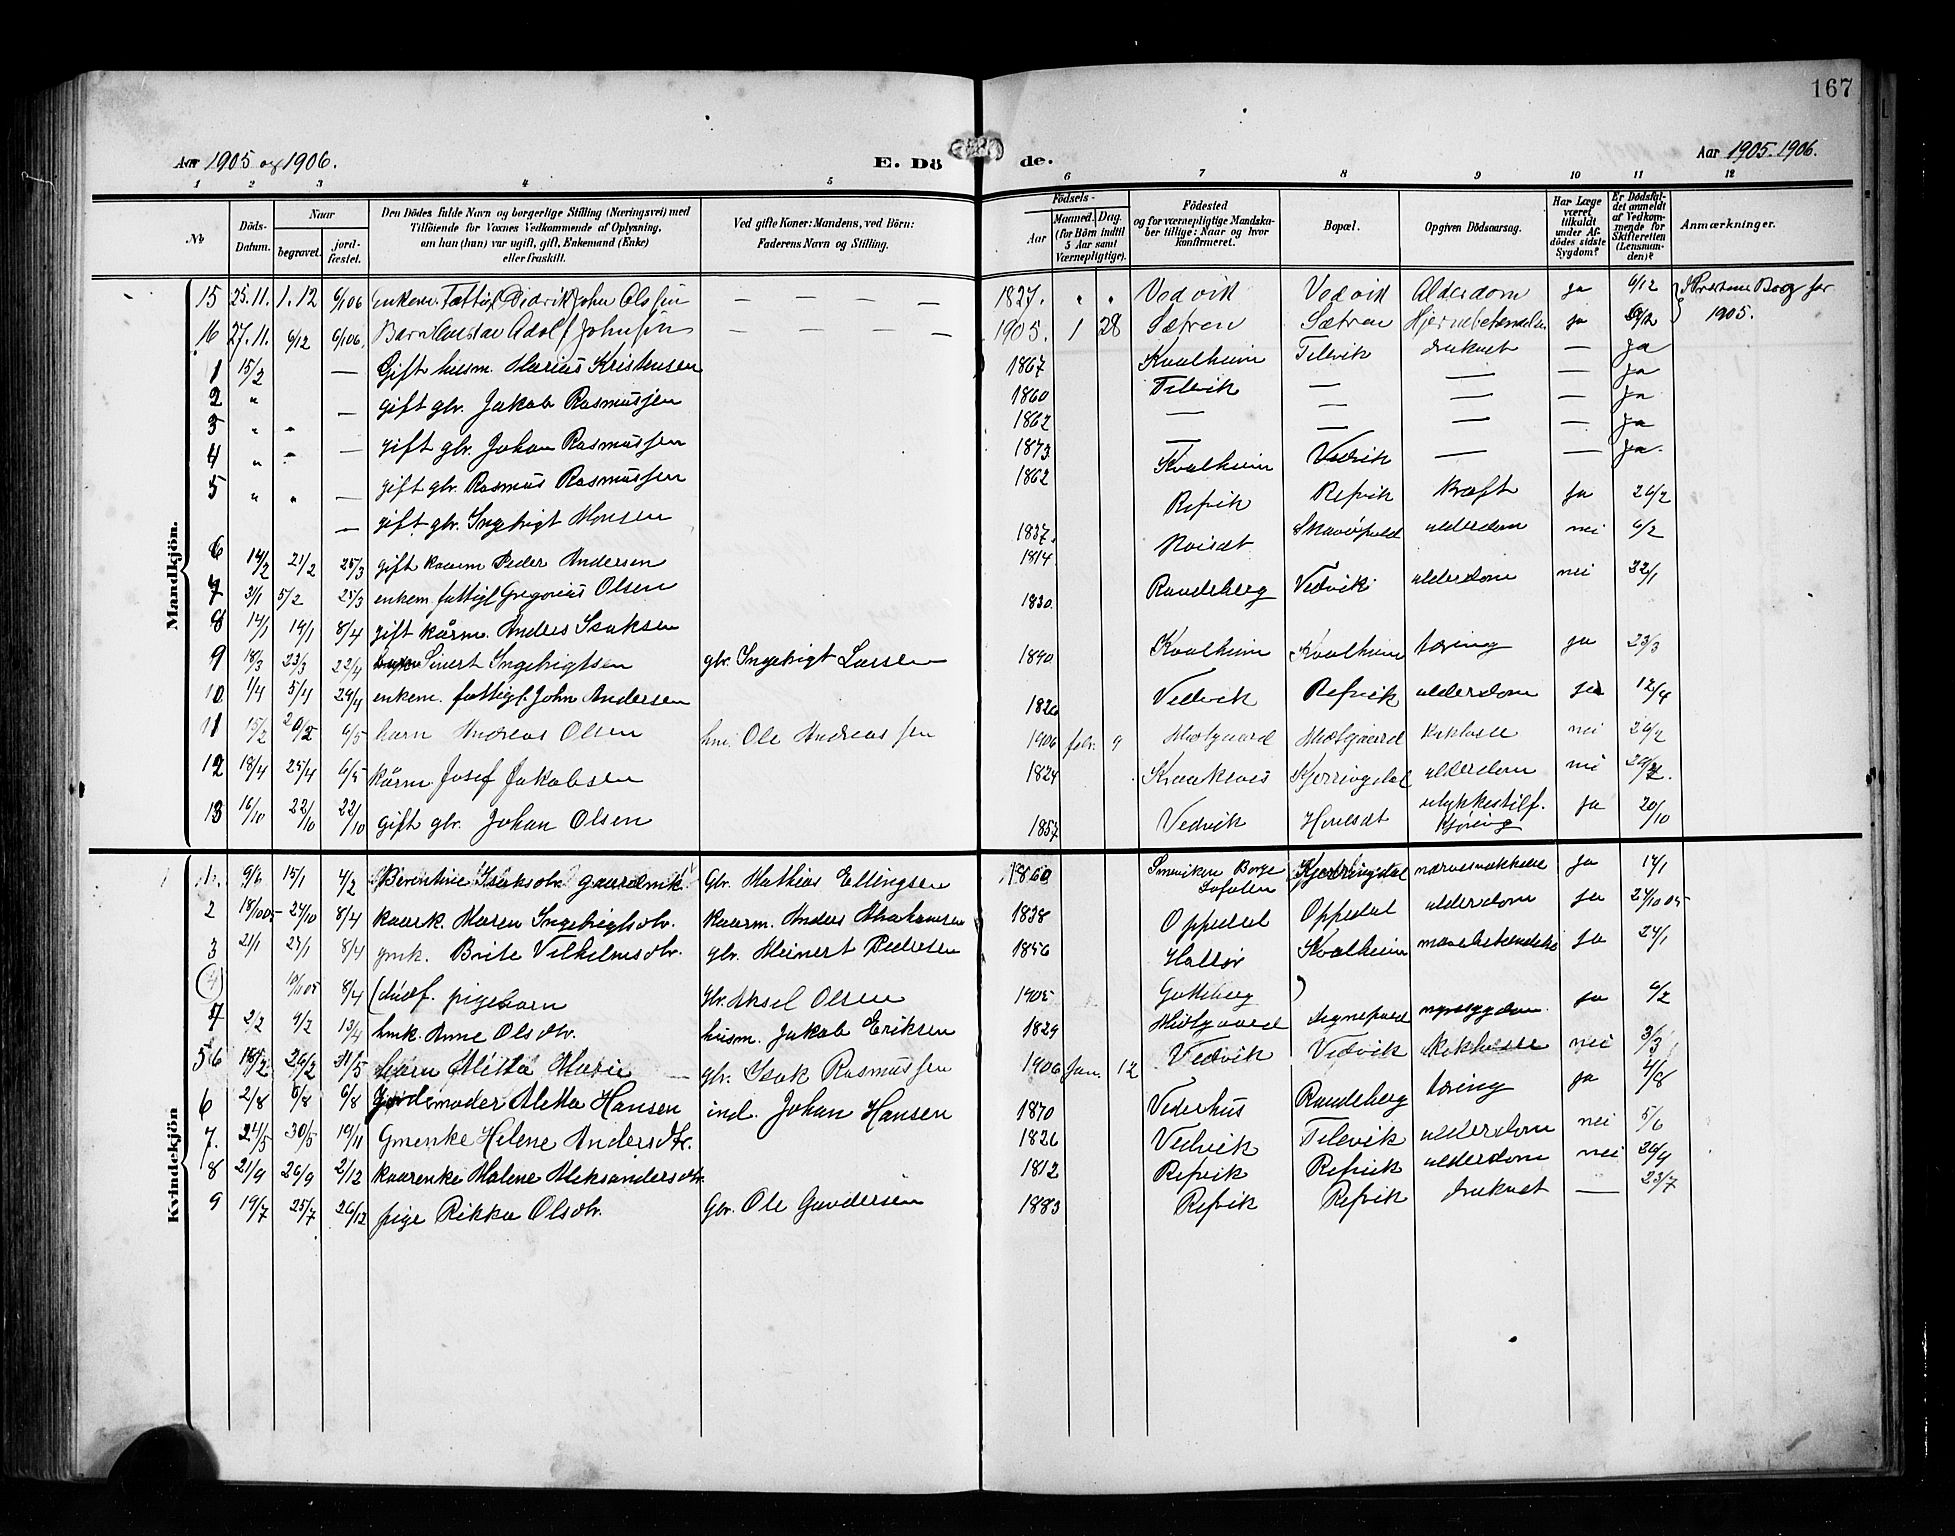 167
Aar 1905 og 1906.
E. Dö
de.
Aar 1905. 1906.
1 2 3 4 5 6 7 8 9 10 11 12
No
Döds-Datum.
Naar
begravet.
jord-fæstet.
Den Dödes fulde Navn og borgerlige Stilling (Næringsvei) med
Tilföiende for Voxnes Vedkommende af Oplysning,
om han (hun) var ugift, gift, Enkemand (Enke)
eller fraskilt.
Ved gifte Koner: Mandens, ved Börn:
Faderens Navn og Stilling.
Födsels-
Aar
Maaned. Dag.
(for Börn indtil
5 Aar samt
Værnepligtige).
Födested
og for værnepligtige Mandska-
ber tillige: Naar og hvor
konfirmeret.
Bopæl.
Opgiven Dödsaarsag.
Har Læge
været
tilkaldt
under Af-
dödes sidste
Sygdom?
Er Dödsfal-
det anmeldt
af Vedkom-
mende for
Skifteretten
(Lensman-
den)?
Anmærkninger.
Mandkjön.
15 25.11. 1.12 6/1 06 Enkem. Fattigl. Didrik John Olsen — — — — 1827. " " Vedvik Vedvik Alderdom ja 6/12
16 27.11. 6/12 6/1 06. Barn Gustav Adolf Johnsen — — — — 1905. 1 28 Sætren Sætren ja 6/12 1905.
1 15/2 — Gift husm. Marius Kristensen 1867 Kvalheim Tilvik druknet — ja
2 " — gift gbr. Jakob Rasmussen 1860 Tilvik — — — ja
3 " " — gift gbr. Johan Rasmussen 1862 — — — — ja
4 " " gift gbr. Rasmus Rasmussen 1873 — — — — ja
5 " " — gift gbr. Ingebrigt Monsen 1862 Kvalheim Vedvik — — ja.
6 14/2 21/2 25/3 gift kaarm Peder Andersen 1837. Refvik Refvik Kræft ja 26/2
7 3/1 5/2 25/3 enkem. fattigl Gregorius Olsen 1814 alderdom nei 6/2
8 14/1 19/1 8/4 gift kårm. Anders Isaksen 1830. Raudeberg Vedvik alderdom nei 22/1
9 18/3 23/3 22/4 Sivert Ingebrigtsen gbr. Ingebrigt Larsen 1890 Kvalheim Kvalheim tæring ja 23/3
10 1/4 5/4 29/4 enkem. fattigl. John Andersen 1826 Vedvik Refvik alderdom ja 12/4
11 15/2 20/2 6/5 barn Andreas Olsen hm. Ole Andreassen 1906 febr. 9 Midtgaard Midtgaard kikhoste nei 26/2
12 18/4 25/4 6/5 Kårm Josef Jakobsen 1824 Kraakenes Kjerringdal alderdom nei
13 16/10 22/10 22/10 gift gbr. Johan Olsen 1857 Vedvik ulykkestilf. kjøring ja 20/10
Kvindekjön
1. 9/1 15/1 4/2 Berentine Isaksdtr. gaardmk. Gbr. Mathias Ellingsen 1860 Borge Lofoten Kjerringdal ja 14/1
2 18/10 05 24/10 8/4 kaark. Maren Ingebrigtsdtr. kaarm. Anders Abrahamsen 1838 Oppedal Oppedal alderdom ja 24/10 05
3 21/1 29/1 8/4 gmk. Brite Vilhelmsdtr. gbr. Meinert Pedersen 1856 Halsør Kvalheim ja 24/1
4 8/4 (dødf. pigebarn gbr. Aksel Olsen 1905 Gotteberg )
2/2 9/2 13/4 hmk. Anne Olsdtr. husm. Jakob Eriksen 1829 Midtgaard nyresygdom ja 6/2
5 6 18/2 26/2 31/5 barn Mitta Marie — gbr. Isak Rasmussen 1906 jan. 12 Vedvik Vedvik kikhoste nei 3/3
6 2/8 6/8 6/8 Jordmoder Aletta Hansen ind. Johan Hansen 1870 Vederhus Raudeberg tæring ja 4/8
7. 24/5 30/5 19/11 Gmenke Helene Andersdtr. 1826 Vedvik Tilevik alderdom nei 5/6
8 21/9 26/9 2/12 kaarenke Malene Aleksandersdtr. 1812 Refvik Refvik alderdom nei 26/9
9 19/7 25/7 26/12 pige Rikka Olsdtr. Gbr. Ole Gundersen 1883 Refvik Refvik druknet — 23/7